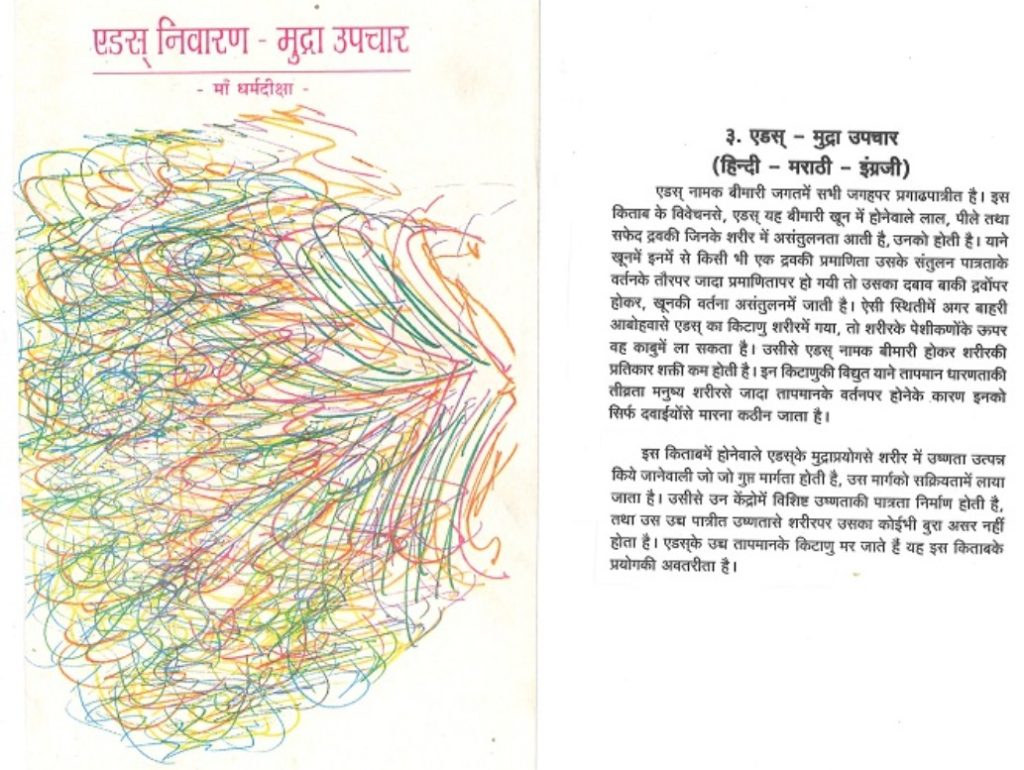 एडस् निवारण - मुद्रा उपचार
- माँ धर्मदीक्षा -
३. एडस् – मुद्रा उपचार
(हिन्दी – मराठी – इंग्रजी)
एडस् नामक बीमारी जगतमें सभी जगहपर प्रगाढपात्रीत है। इस
किताब के विवेचनसे, एडस् यह बीमारी खून में होनेवाले लाल, पीले तथा
सफेद द्रवकी जिनके शरीर में असंतुलनता आती है, उनको होती है। याने
खूनमें इनमें से किसी भी एक द्रवकी प्रमाणिता उसके संतुलन पात्रताके
वर्तनके तौरपर जादा प्रमाणितापर हो गयी तो उसका दबाव बाकी द्रवोंपर
होकर, खूनकी वर्तना असंतुलनमें जाती है। ऐसी स्थितीमें अगर बाहरी
आबोहवासे एडस् का किटाणु शरीरमें गया, तो शरीरके पेशीकणोंके ऊपर
वह काबुमें ला सकता है। उसीसे एडस् नामक बीमारी होकर शरीरकी
प्रतिकार शक्ती कम होती है। इन किटाणुकी विद्युत याने तापमान धारणताकी
तीव्रता मनुष्य शरीरसे जादा तापमानके वर्तनपर होनेके कारण इनको
सिर्फ दवाईयोंसे मारना कठीन जाता है।
इस किताबमें होनेवाले एडस्के मुद्राप्रयोगसे शरीर में उष्णता उत्पन्न
किये जानेवाली जो जो गुप्त मार्गता होती है, उस मार्गको सक्रियतामें लाया
जाता है। उसीसे उन केंद्रोमें विशिष्ट उष्णताकी पात्रता निर्माण होती है,
तथा उस उच्च पात्रीत उष्णतासे शरीरपर उसका कोईभी बुरा असर नहीं
होता है। एडस्के उच्च तापमानके किटाणु मर जाते हैं यह इस किताबके
प्रयोगकी अवतरीता है।